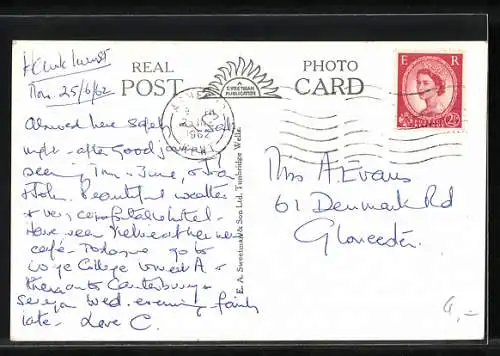 Hawkhurst
Mon. 25/6/62
REAL PHOTO
POST CARD
A
SWEETMAN
PUBLICATION
E R
1962
Arrived here safely
night - after good journey
seeing Tom & June,
John. Beautiful weather
& very comfortable hotel -
Have seen
café - Today we go to
Wye College
then on to Canterbury &
see you Wed. evening fairly
late - Love C.
E. A. Sweetman & Son Ltd. Tunbridge Wells.
Miss A. Evans
61 Denmark Rd
Gloucester.
4,-